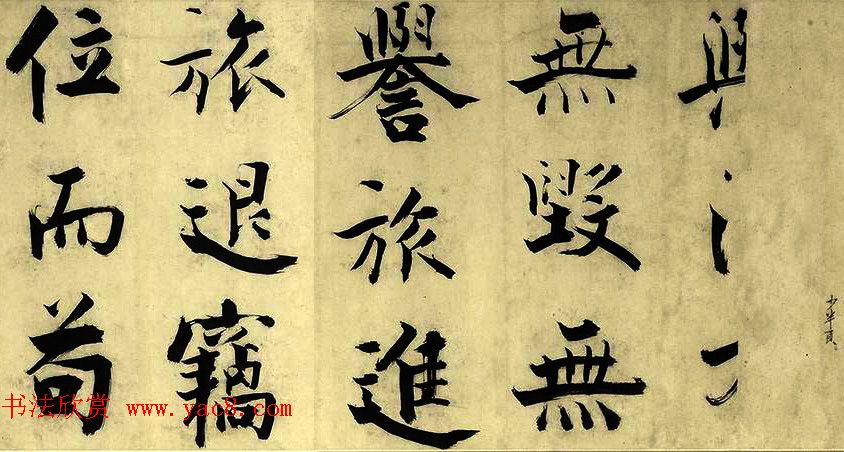 少半頁
無毀無
譽旅進
旅退竊
位而苟
书法欣赏 www.yac8.com